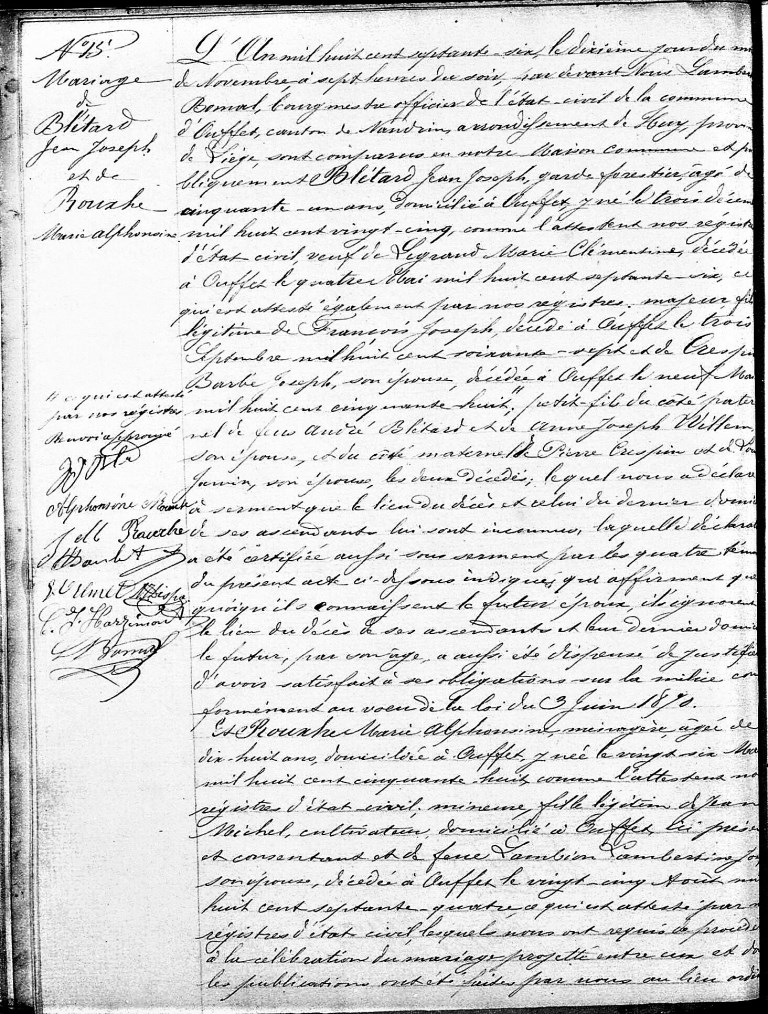 N° 15.
Mariage
de
Blétard
Jean Joseph
et de
Rouxhe
Marie Alphonsine
# ce qui est attesté
par nos régistres
Renvoi approuvé
Alphonsine Rouxhe
J M Rouxhe
L'An mil huit cent septante-six, le dixième jour du m
de Novembre à sept heures du soir, par devant Nous Lamber
Bomal, bourgmestre officier de l'état-civil de la commune
d'Ouffet, canton de Nandrin, arrondissement de Huy, provin
de Liége, sont comparus en notre Maison commune et p
bliquement Blétard Jean Joseph, garde forestier, âgé de
cinquante-un ans, domicilié à Ouffet, y né le trois décem
mil huit cent vingt-cinq, comme l'attestent nos régistr
d'état civil, veuf de Legrand Marie Clémentine, décédée
à Ouffet le quatre Mai mil huit cent septante-six, ce
qui est attesté également par nos régistres, majeur, fils
légitime de François Joseph, décédé à Ouffet le trois
Septembre mil huit cent soixante-sept et de Crespin
Barbe Joseph, son épouse, décédée à Ouffet le neuf Mai
mil huit cent cinquante-huit, # petit-fils du côté pater
nel de feus André Blétard et de Anne Joseph Willem,
son épouse, et du côté maternel de Pierre Crespin et de
son épouse, les deux décédés; lequel nous a déclaré
à serment que le lieu du décès et celui du dernier domi
de ses ascendants lui sont inconnus, laquelle déclarat
a été certifiée aussi sous serment par les quatre tém
du présent acte ci-dessous indiqués, qui affirment que
quoiqu'ils connaissent le futur époux, ils ignorent
le lieu du décès de ses ascendants et leur dernier domi
le futur, par son âge, a aussi été dispensé de justifier
d'avoir satisfait à ses obligations sur la milice con
formément au voeu de la loi du 3 Juin 1870.
Et Rouxhe Marie Alphonsine, ménagère, âgée de
dix-huit ans, domiciliée à Ouffet, y née le vingt-six Mai
mil huit cent cinquante-huit, comme l'attestent no
régistres d'état-civil, mineure, fille légitime de Jean
Michel, cultivateur, domicilié à Ouffet, ici présen
et consentant et de feue Lambion Lambertine Jo
son épouse, décédée à Ouffet le vingt-cinq Août mi
huit cent septante-quatre, ce qui est attesté par n
régistres d'état civil, lesquels nous ont requis de procéder
à la célébration du mariage projetté entre eux et do
les publications ont été faites par nous au lieu ordi